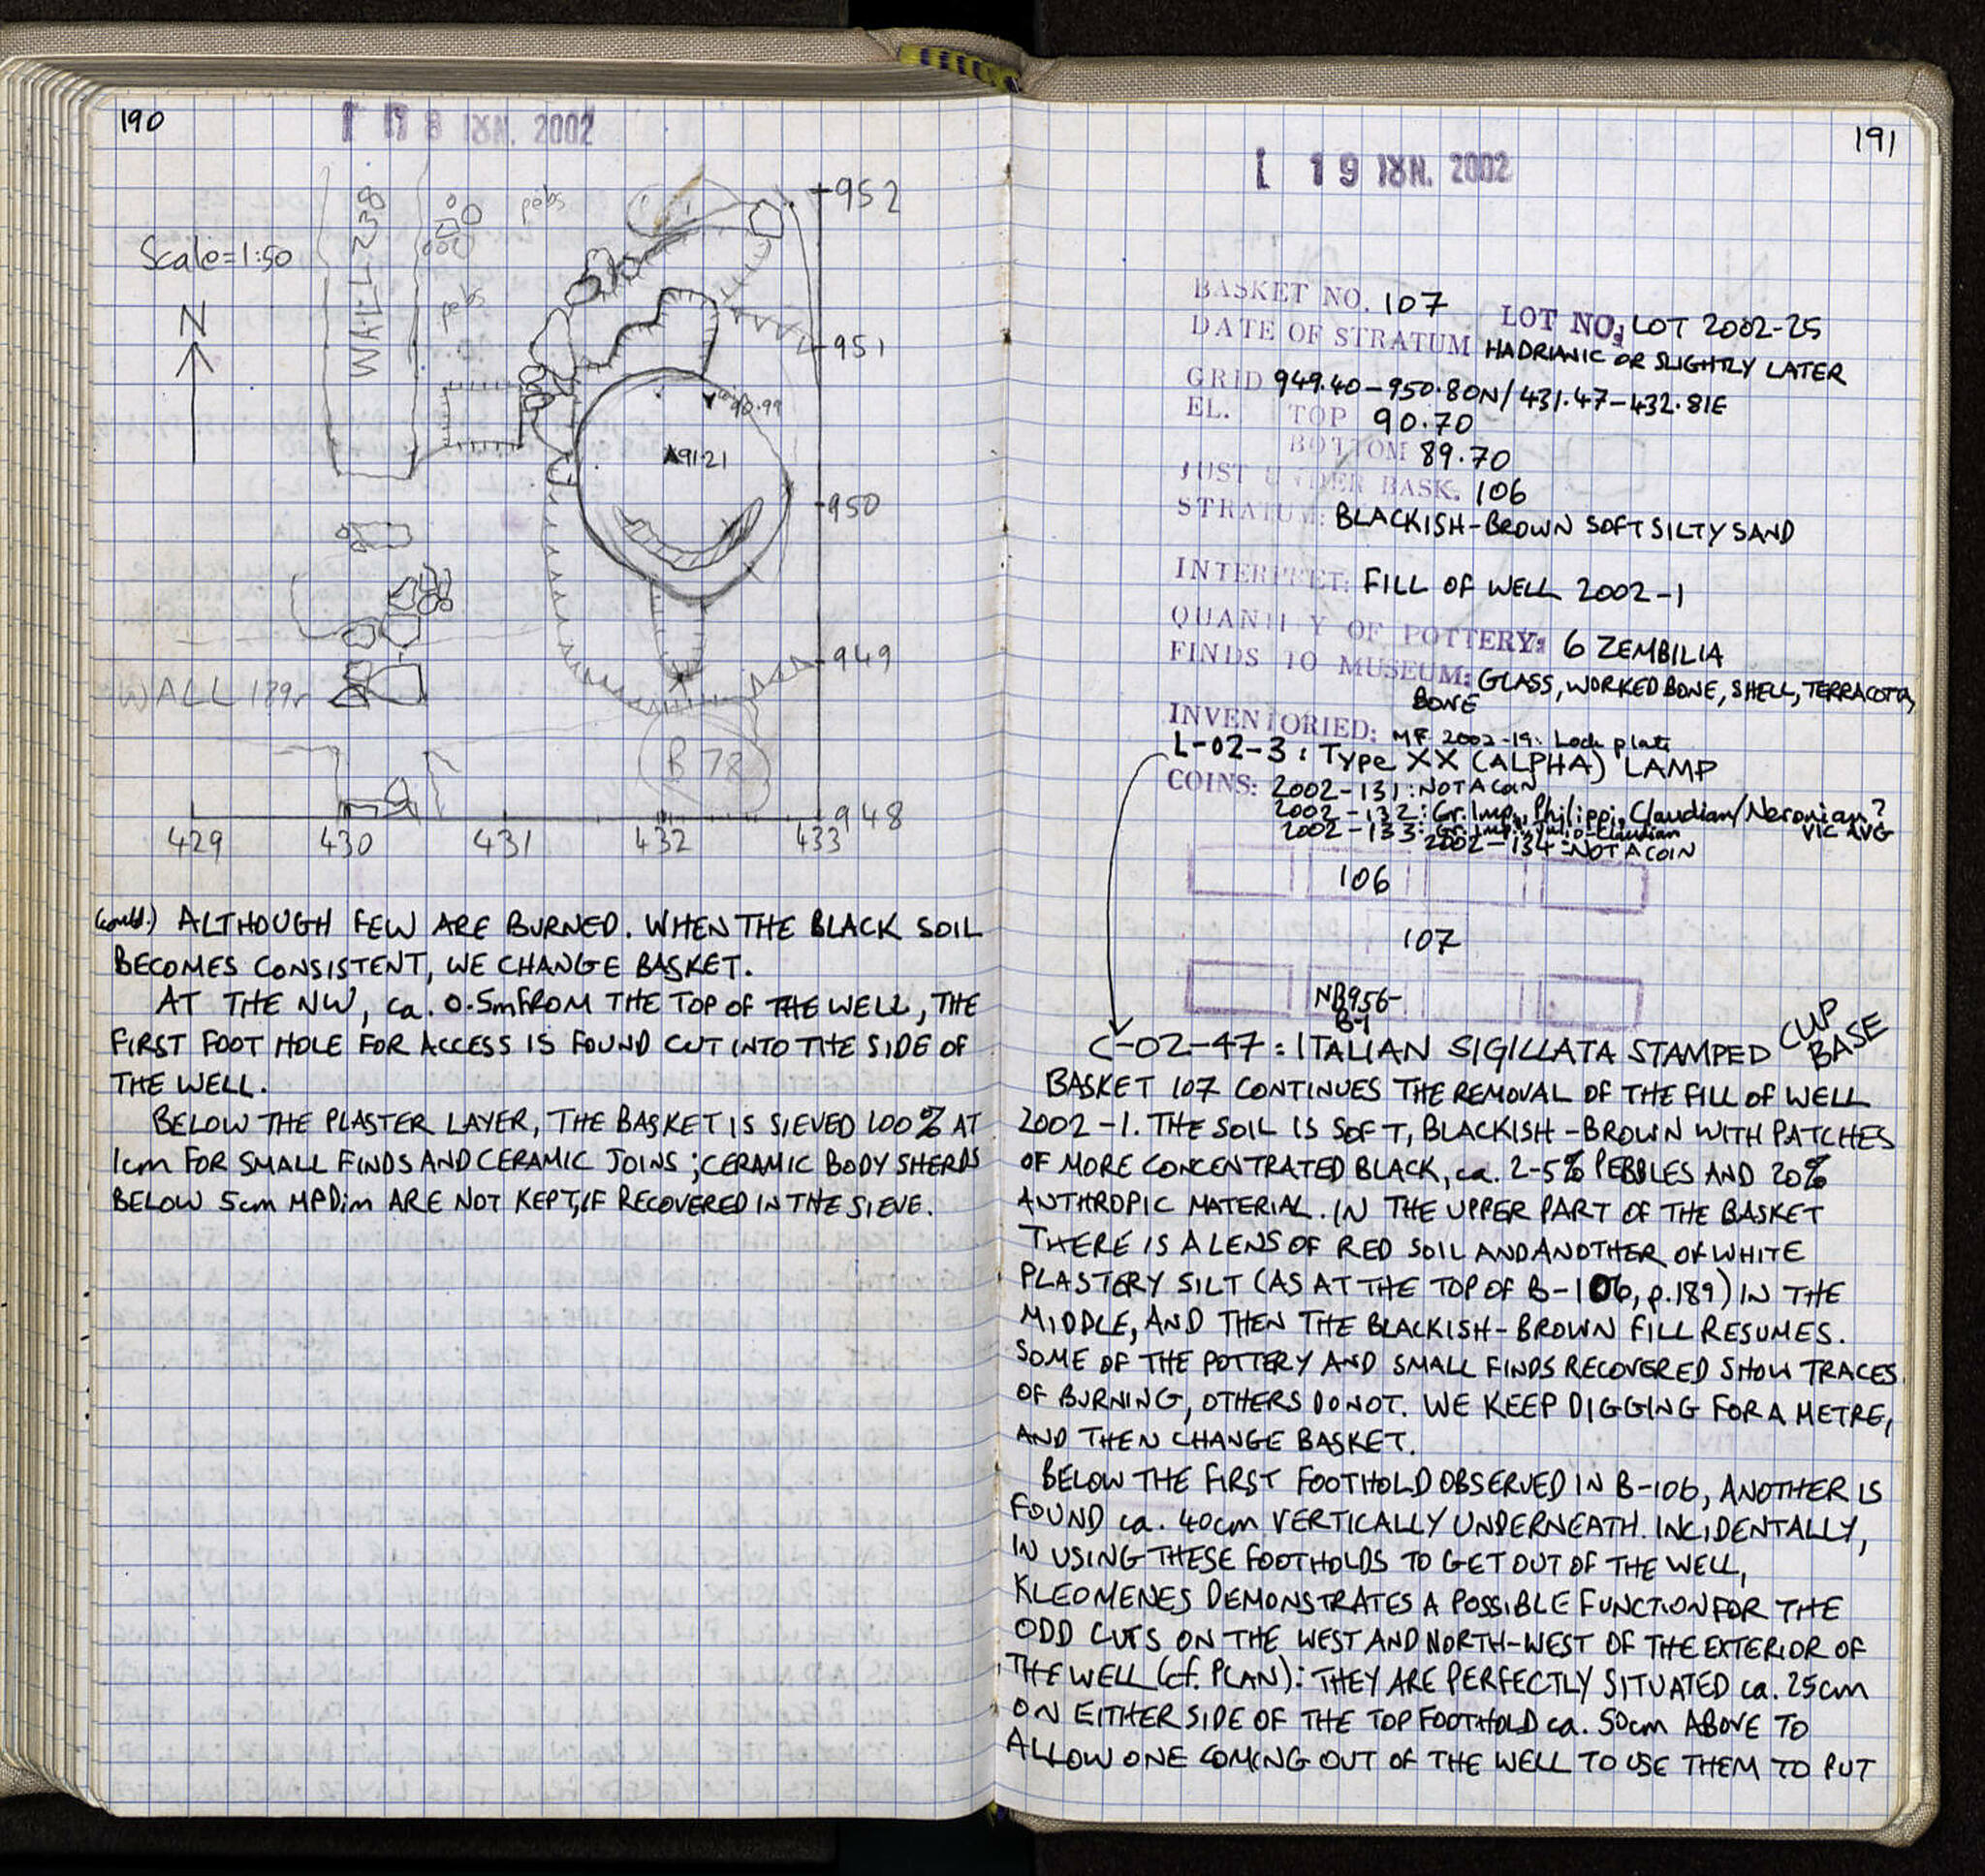 190
18 ΙΟΥΝ. 2002
952
pebs
Scale=1:50
WALL 238
N
pebs
951
90.99
91.21
950
949
WALL 189
B 78
948
429 430 431 432 433
(contd.) ALTHOUGH FEW ARE BURNED. WHEN THE BLACK SOIL
BECOMES CONSISTENT, WE CHANGE BASKET.
AT THE NW, ca. 0.5m FROM THE TOP OF THE WELL, THE
FIRST FOOT HOLE FOR ACCESS IS FOUND CUT INTO THE SIDE OF
THE WELL.
BELOW THE PLASTER LAYER, THE BASKET IS SIEVED 100% AT
1cm FOR SMALL FINDS AND CERAMIC JOINS; CERAMIC BODY SHERDS
BELOW 5cm MPDim ARE NOT KEPT, IF RECOVERED IN THE SIEVE.
191
19 ΙΟΥΝ. 2002
BASKET NO. 107 LOT NO: LOT 2002-25
DATE OF STRATUM HADRIANIC OR SLIGHTLY LATER
GRID 949.40-950.80N/431.47-432.81E
EL. TOP 90.70
BOTTOM 89.70
JUST UNDER BASK. 106
STRATUM: BLACKISH-BROWN SOFT SILTY SAND
INTERPRET: FILL OF WELL 2002-1
QUANTITY OF POTTERY: 6 ZEMBILIA
FINDS TO MUSEUM: GLASS, WORKED BONE, SHELL, TERRACOTTA,
BONE
INVENTORIED: MF 2002-19: Lock plate
L-02-3: Type XX (ALPHA) LAMP
COINS: 2002-131: NOT A COIN
2002-132: Gr. Imp., Philippi, Claudian/Neronian?
VIC AVG
2002-133: Gr. Imp., Julio-Claudian
2002-134: NOT A COIN
106
107
NB956-
B1
C-02-47: ITALIAN SIGILLATA STAMPED CUP BASE
BASKET 107 CONTINUES THE REMOVAL OF THE FILL OF WELL
2002-1. THE SOIL IS SOFT, BLACKISH-BROWN WITH PATCHES
OF MORE CONCENTRATED BLACK, ca. 2-5% PEBBLES AND 20%
ANTHROPIC MATERIAL. IN THE UPPER PART OF THE BASKET
THERE IS A LENS OF RED SOIL AND ANOTHER OF WHITE
PLASTERY SILT (AS AT THE TOP OF B-106, p.189) IN THE
MIDDLE, AND THEN THE BLACKISH-BROWN FILL RESUMES.
SOME OF THE POTTERY AND SMALL FINDS RECOVERED SHOW TRACES
OF BURNING, OTHERS DO NOT. WE KEEP DIGGING FOR A METRE,
AND THEN CHANGE BASKET.
BELOW THE FIRST FOOTHOLD OBSERVED IN B-106, ANOTHER IS
FOUND ca. 40cm VERTICALLY UNDERNEATH. INCIDENTALLY,
IN USING THESE FOOTHOLDS TO GET OUT OF THE WELL,
KLEOMENES DEMONSTRATES A POSSIBLE FUNCTION FOR THE
ODD CUTS ON THE WEST AND NORTH-WEST OF THE EXTERIOR OF
THE WELL (cf. PLAN): THEY ARE PERFECTLY SITUATED ca. 25cm
ON EITHER SIDE OF THE TOP FOOTHOLD ca. 50cm ABOVE TO
ALLOW ONE COMING OUT OF THE WELL TO USE THEM TO PUT